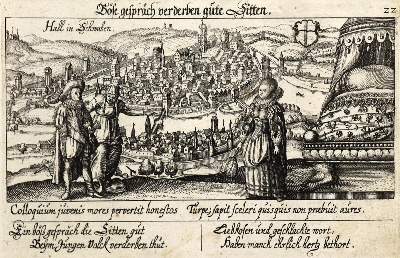 Böse gespräch verderben gute Sitten.
ZZ
Hall in Schwaben.
Colloquium juvenis mores pervertit honestos
Turpe sapit sceleri quisquis non præbuit aures.
Ein böß gespräch die Sitten gut
Beym Jungen Volck verderben thut.
Liebkosen und geschlachte wort.
Haben manch ehrlich hertz bethort.